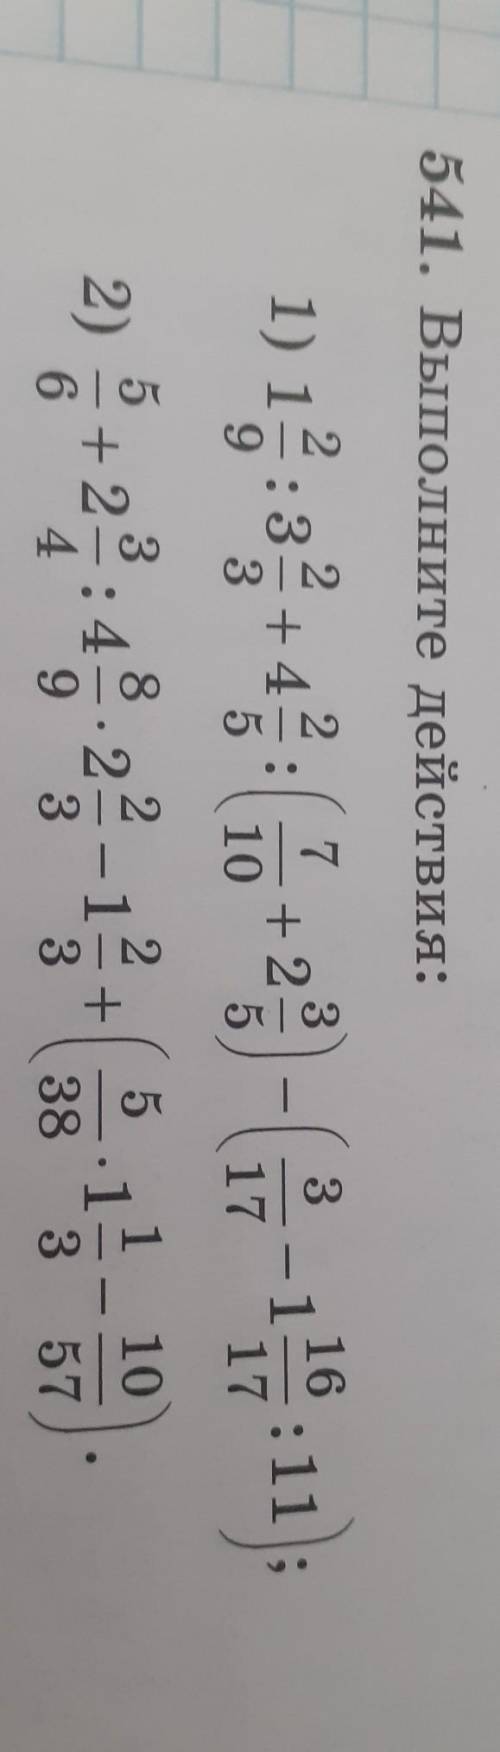 541. Выполните действия:
1) 1 2/9 : 3 2/3 + 4 2/5 : (7/10 + 2 3/5) − (3/17 − 1 16/17 : 11);
2) 5/6 + 2 3/4 : 4 8/9 · 2 2/3 − 1 2/3 + (5/38 · 1 1/3 − 10/57).